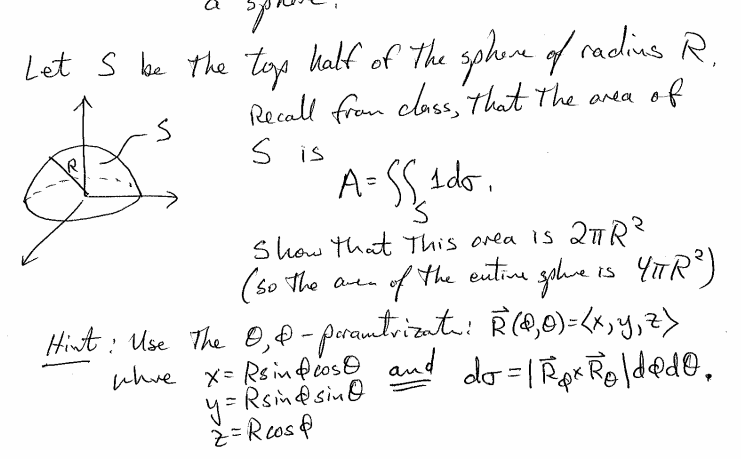 a sphere.
Let S be the top half of the sphere of radius R.
Recall from class, that the area of
S
R
S is
A = ∬_S 1dσ.
Show that this area is 2πR²
(so the area of the entire sphere is 4πR²)
Hint: Use the θ, φ - parametrizat.: R⃗(φ,θ)=⟨x,y,z⟩
where x = R sin φ cos θ and dσ = |R⃗_φ × R⃗_θ| dφ dθ.
y = R sin φ sin θ
z = R cos φ